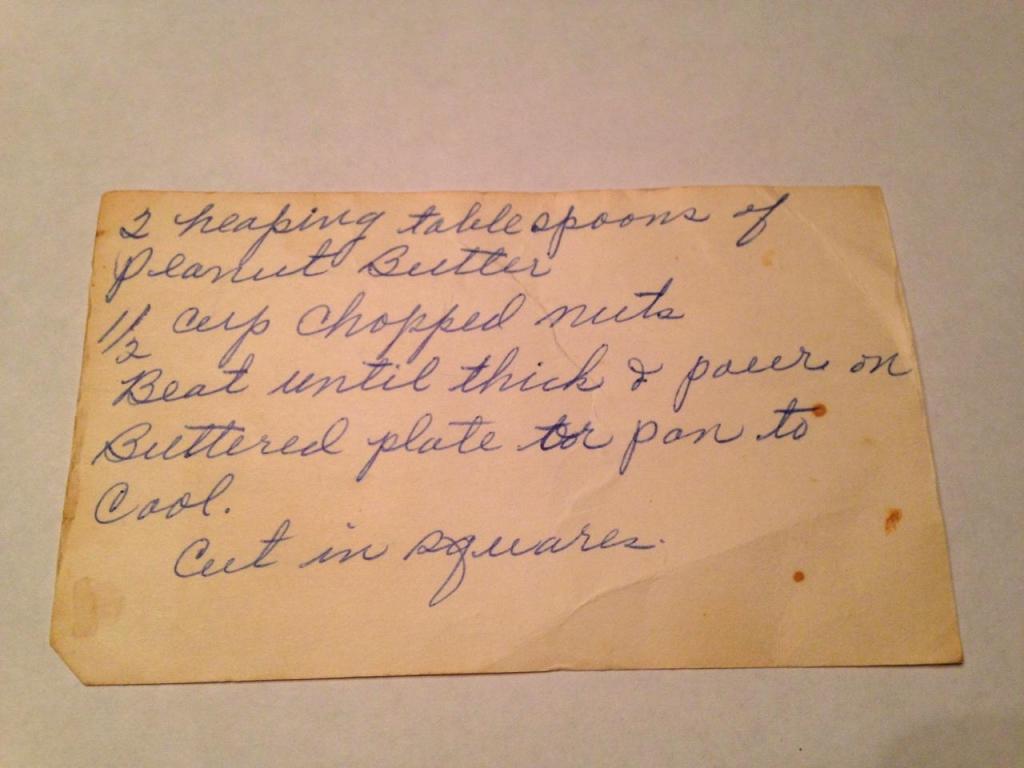 2 heaping tablespoons of
Peanut Butter
1½ cup chopped nuts
Beat until thick & pour on
Buttered plate or pan to
Cool.
Cut in squares.